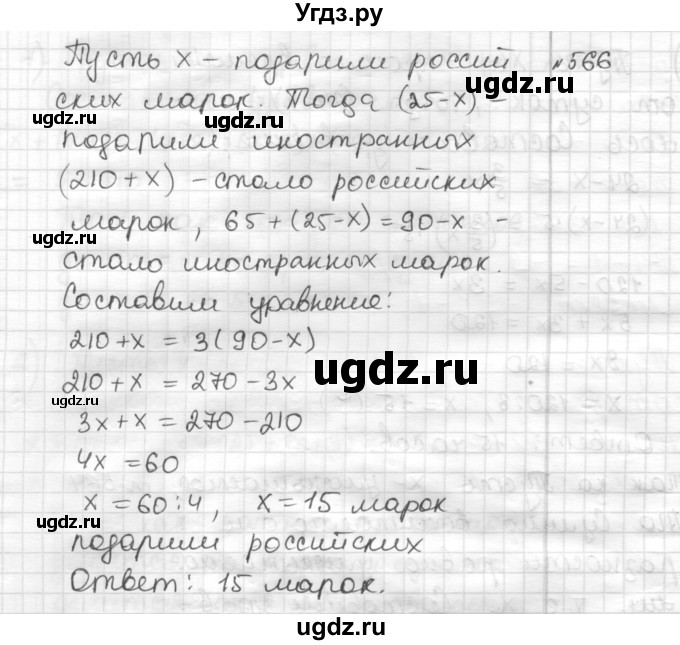 Угдз.ру
Пусть х – подарили россий №566
ских марок. Тогда (25-х) –
ugdz.ru ugdz.ru
подарили иностранных
(210+х) – стало российских
марок, 65+(25-х)=90-х –
ugdz.ru
стало иностранных марок.
Составим уравнение:
210+х = 3(90-х)
ugdz.ru
210+х = 270-3х
ugdz.ru
3х+х = 270-210
4х =60
х =60:4, х=15 марок
ugdz.ru
подарили российских
Ответ: 15 марок.
ugdz.ru